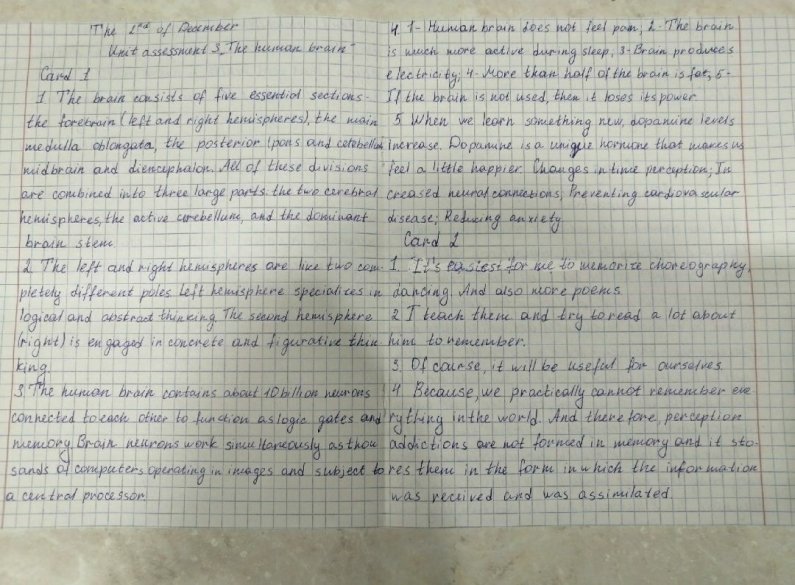 The 2nd of December
Unit assessment 3 „The human brain"
Card 1
1 The brain consists of five essential sections -
the forebrain (left and right hemispheres), the main
medulla oblongata, the posterior (pons and cerebellum
midbrain and diencephalon. All of these divisions
are combined into three large parts: the two cerebral
hemispheres, the active cerebellum, and the dominant
brain stem.
2 The left and right hemispheres are like two com-
pletely different poles. Left hemisphere specialices in
logical and abstract thinking. The second hemisphere
(right) is engaged in concrete and figurative thin
king.
3. The human brain contains about 10 billion neurons
connected to each other to function as logic gates and
memory. Brain neurons work simultaneously as thou
sands of computers operating in images and subject to
a central processor.
4. 1- Human brain does not feel pain; 2- The brain
is much more active during sleep; 3- Brain produces
electricity; 4- More than half of the brain is fat; 5-
If the brain is not used, then it loses its power.
5 When we learn something new, dopamine levels
increase. Dopamine is a unique hormone that makes us
feel a little happier. Changes in time perception; In
creased neural connections; Preventing cardiovascular
disease; Reducing anxiety.
Card 2
1. It's easiest for me to memorize choreography,
dancing. And also more poems.
2 I teach them and try to read a lot about
him to remember.
3. Of course, it will be useful for ourselves.
4 Because, we practically cannot remember eve
rything in the world. And therefore, perception
addictions are not formed in memory and it sto-
res them in the form in which the information
was received and was assimilated.